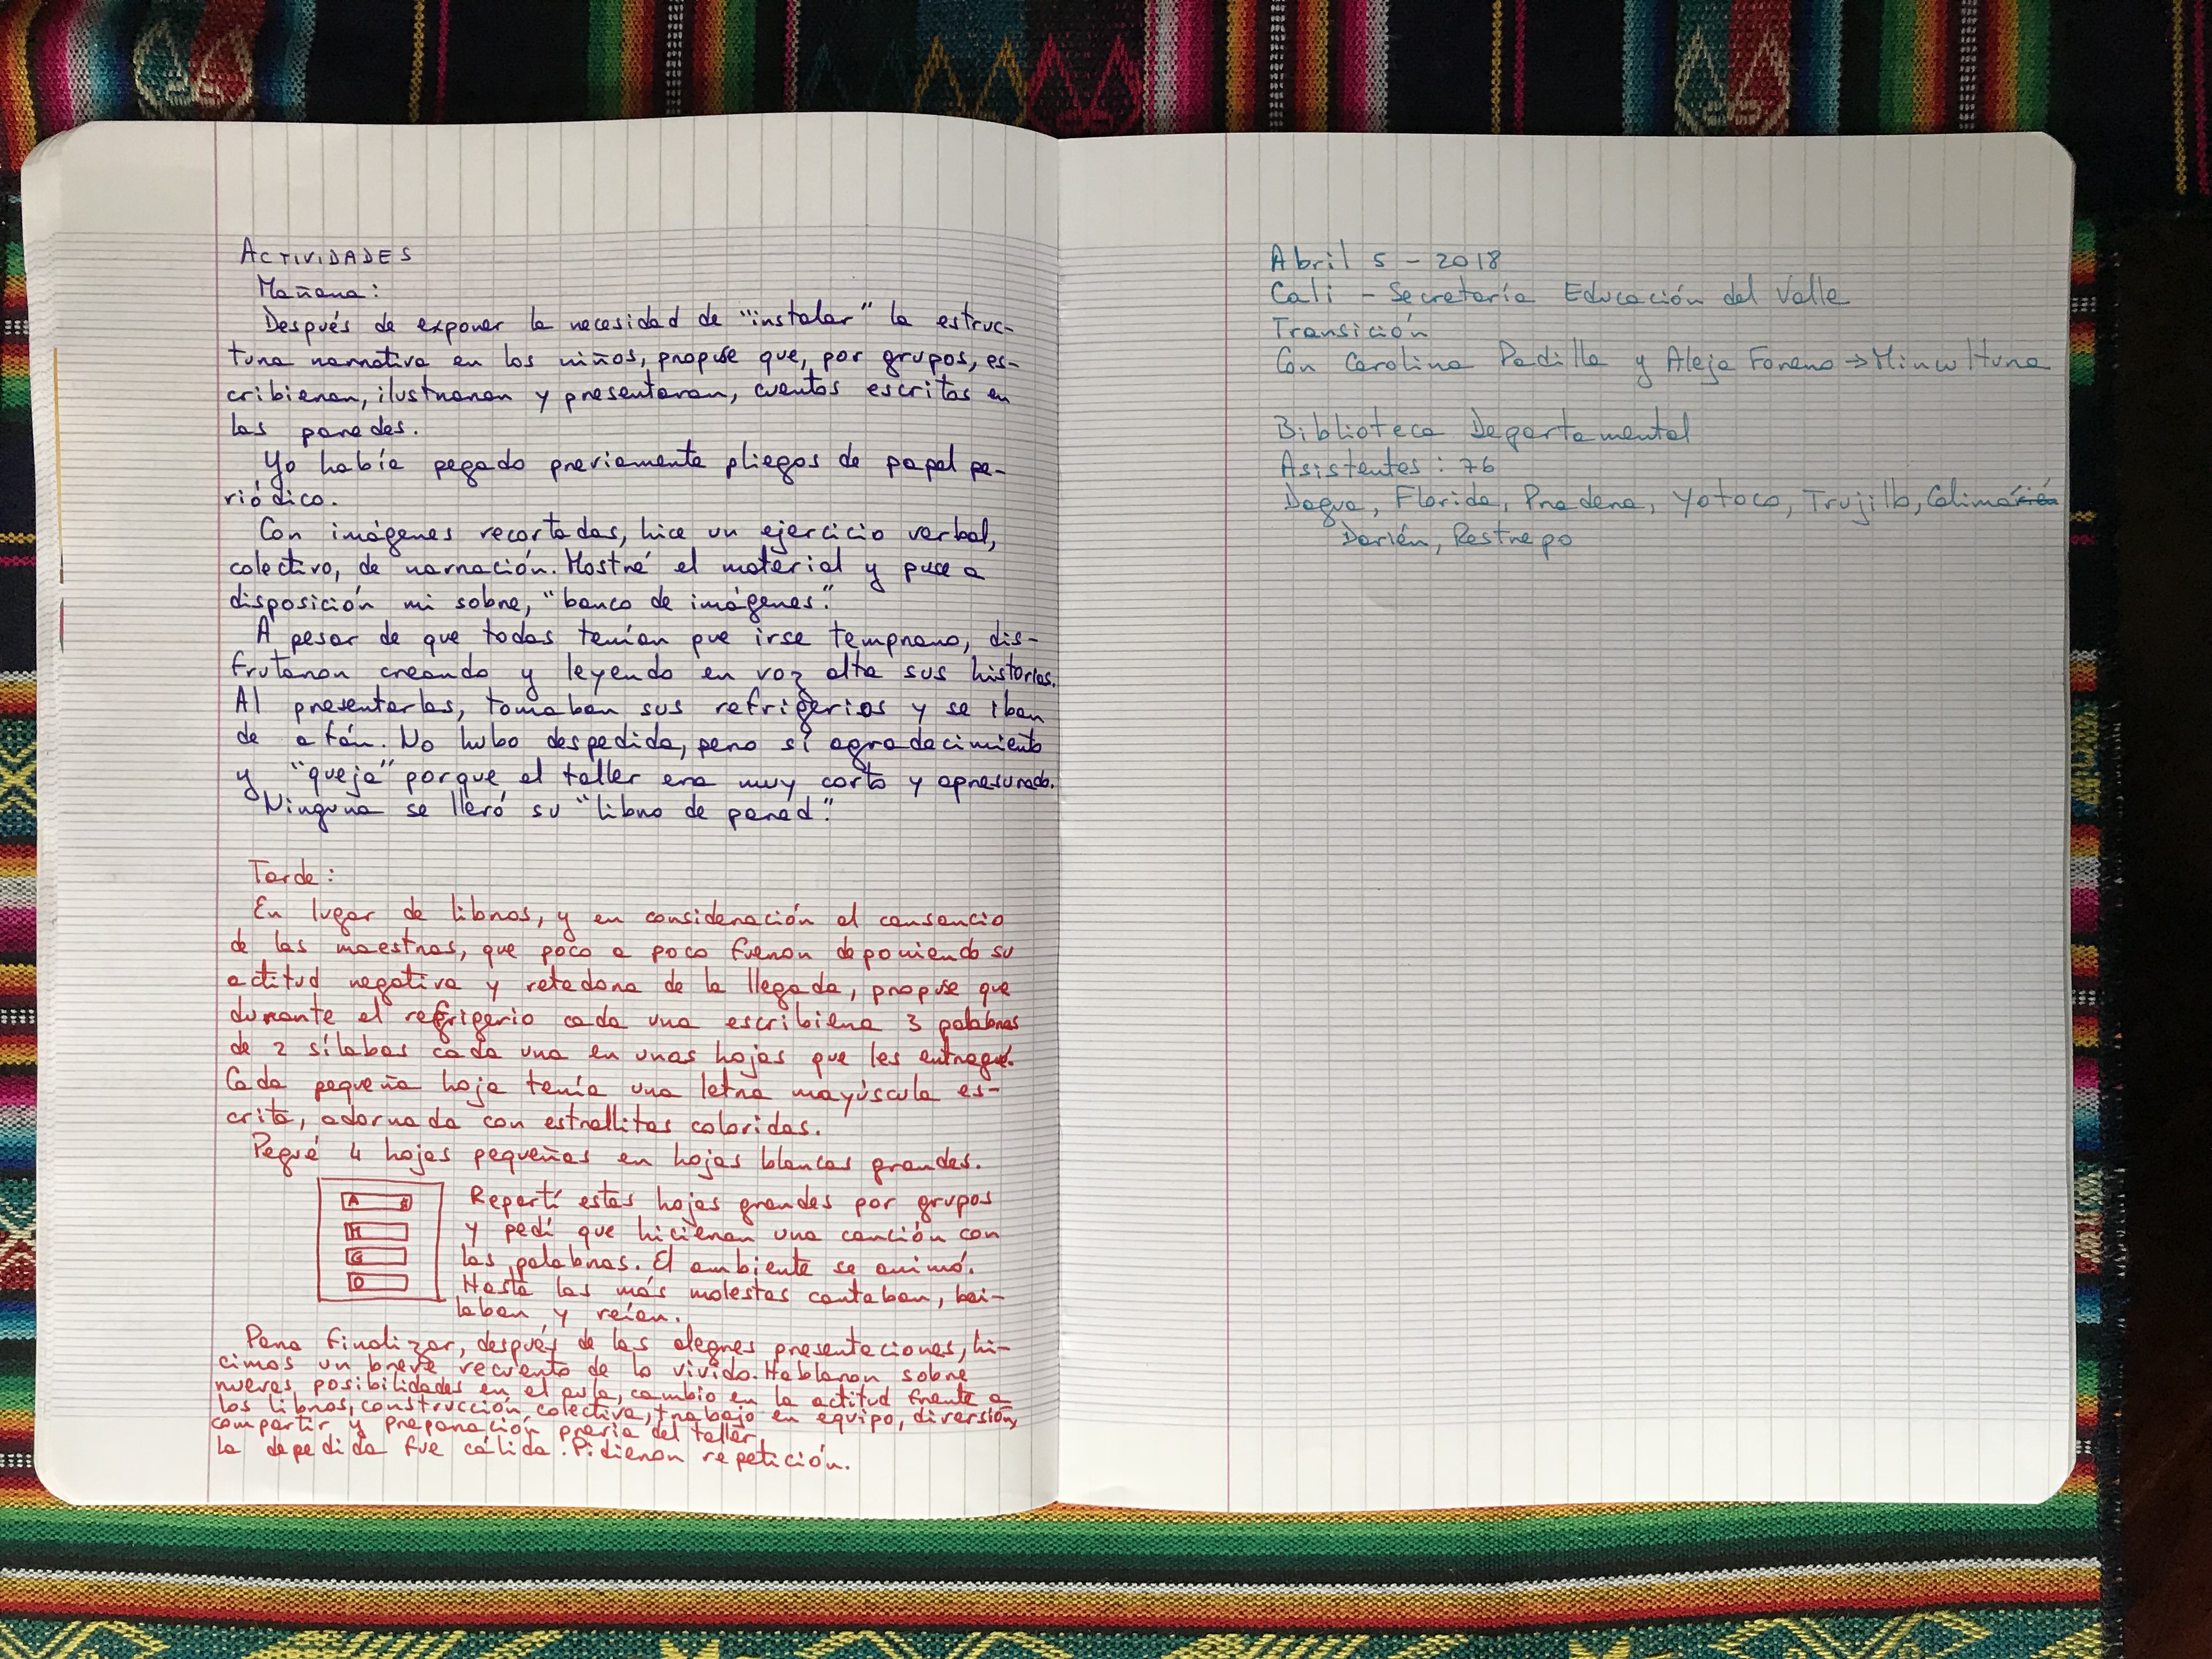 ACTIVIDADES
Mañana:
Después de exponer la necesidad de "instalar" la estruc-
tura narrativa en los niños, propuse que, por grupos, es-
cribieran, ilustraran y presentaran, cuentos escritos en
las paredes.
Yo había pegado previamente pliegos de papel pe-
riódico.
Con imágenes recortadas, hice un ejercicio verbal,
colectivo, de narración. Mostré el material y puse a
disposición mi sobre, "banco de imágenes".
A pesar de que todas tenían que irse temprano, dis-
frutaron creando y leyendo en voz alta sus historias.
Al presentarlas, tomaban sus refrigerios y se iban
de afán. No hubo despedida, pero sí agradecimiento
y "queja" porque el taller era muy corto y apresurado.
Ninguna se llevó su "libro de pared".
Tarde:
En lugar de libros, y en consideración al cansancio
de las maestras, que poco a poco fueron deponiendo su
actitud negativa y retadora de la llegada, propuse que
durante el refrigerio cada una escribiera 3 palabras
de 2 sílabas cada una en unas hojas que les entregué.
Cada pequeña hoja tenía una letra mayúscula es-
crita, adornada con estrellitas coloridas.
Pegué 4 hojas pequeñas en hojas blancas grandes.
A
M
G
D
Repartí estas hojas grandes por grupos
y pedí que hicieran una canción con
las palabras. El ambiente se animó.
Hasta las más molestas cantaban, bai-
laban y reían.
Para finalizar, después de las alegres presentaciones, hi-
cimos un breve recuento de lo vivido. Hablaron sobre
nuevas posibilidades en el aula, cambio en la actitud frente a
los libros, construcción colectiva, trabajo en equipo, diversión,
compartir y preparación previa del taller.
La depedida fue cálida. Pidieron repetición.
Abril 5 - 2018
Cali - Secretaría Educación del Valle
Transición
Con Carolina Padilla y Aleja Forero → Mincultura
Biblioteca Departamental
Asistentes: 76
Dagua, Florida, Pradera, Yotoco, Trujillo, Calima
Darién, Restrepo